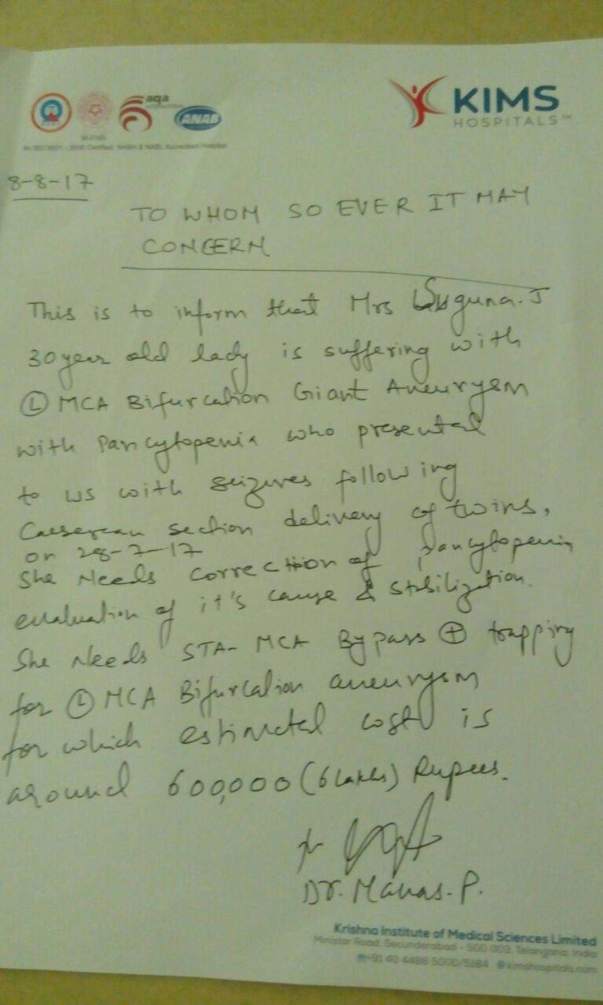 aqa
ANAB
KIMS
HOSPITALS
8-8-17
TO WHOM SO EVER IT MAY
CONCERN
This is to inform that Mrs Suguna. J
30 year old lady is suffering with
Ⓛ MCA Bifurcation Giant Aneurysm
with Pancytopenia who presented
to us with seizures following
Caeserean section delivery of twins,
on 28-7-17
She Needs correction of pancytopenia
evaluation of it's cause & stabilization.
She Needs STA-MCA Bypass ⊕ trapping
for Ⓛ MCA Bifurcation aneurysm
for which estimated cost is
around 600,000 (6 Lakhs) Rupees.
Dr. Manas. P.
Krishna Institute of Medical Sciences Limited
Minister Road, Secunderabad - 500 003, Telangana, India
+91 40 4488 5000/5184 kimshospitals.com